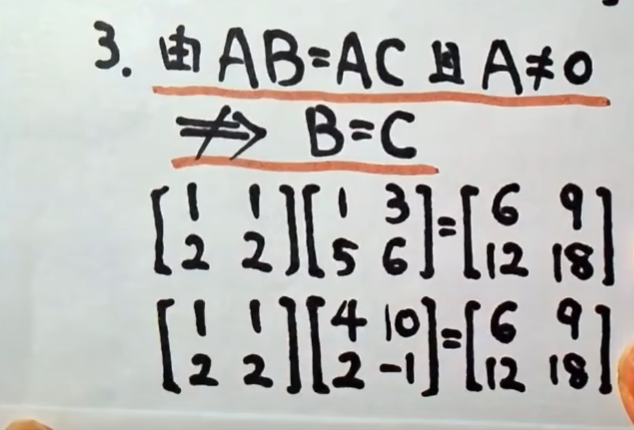 3. 由 AB=AC 且 A≠0
⇏ B=C
[1 1
2 2][1 3
5 6]=[6 9
12 18]
[1 1
2 2][4 10
2 -1]=[6 9
12 18]